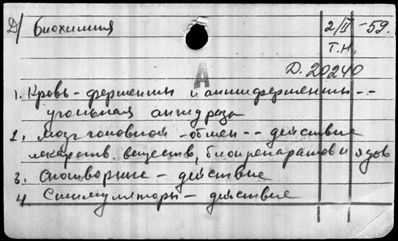 Д/ биохимия 2/II -59.
Т.Н.
Д. 20240
А
1. Кровь - ферменты и антиферменты --
угольная ангидраза
2. Мозг головной - обмен -- действие
лекарств. веществ, биопрепаратов и ядов
3. Снотворные - действие
4 Стимуляторы - действие